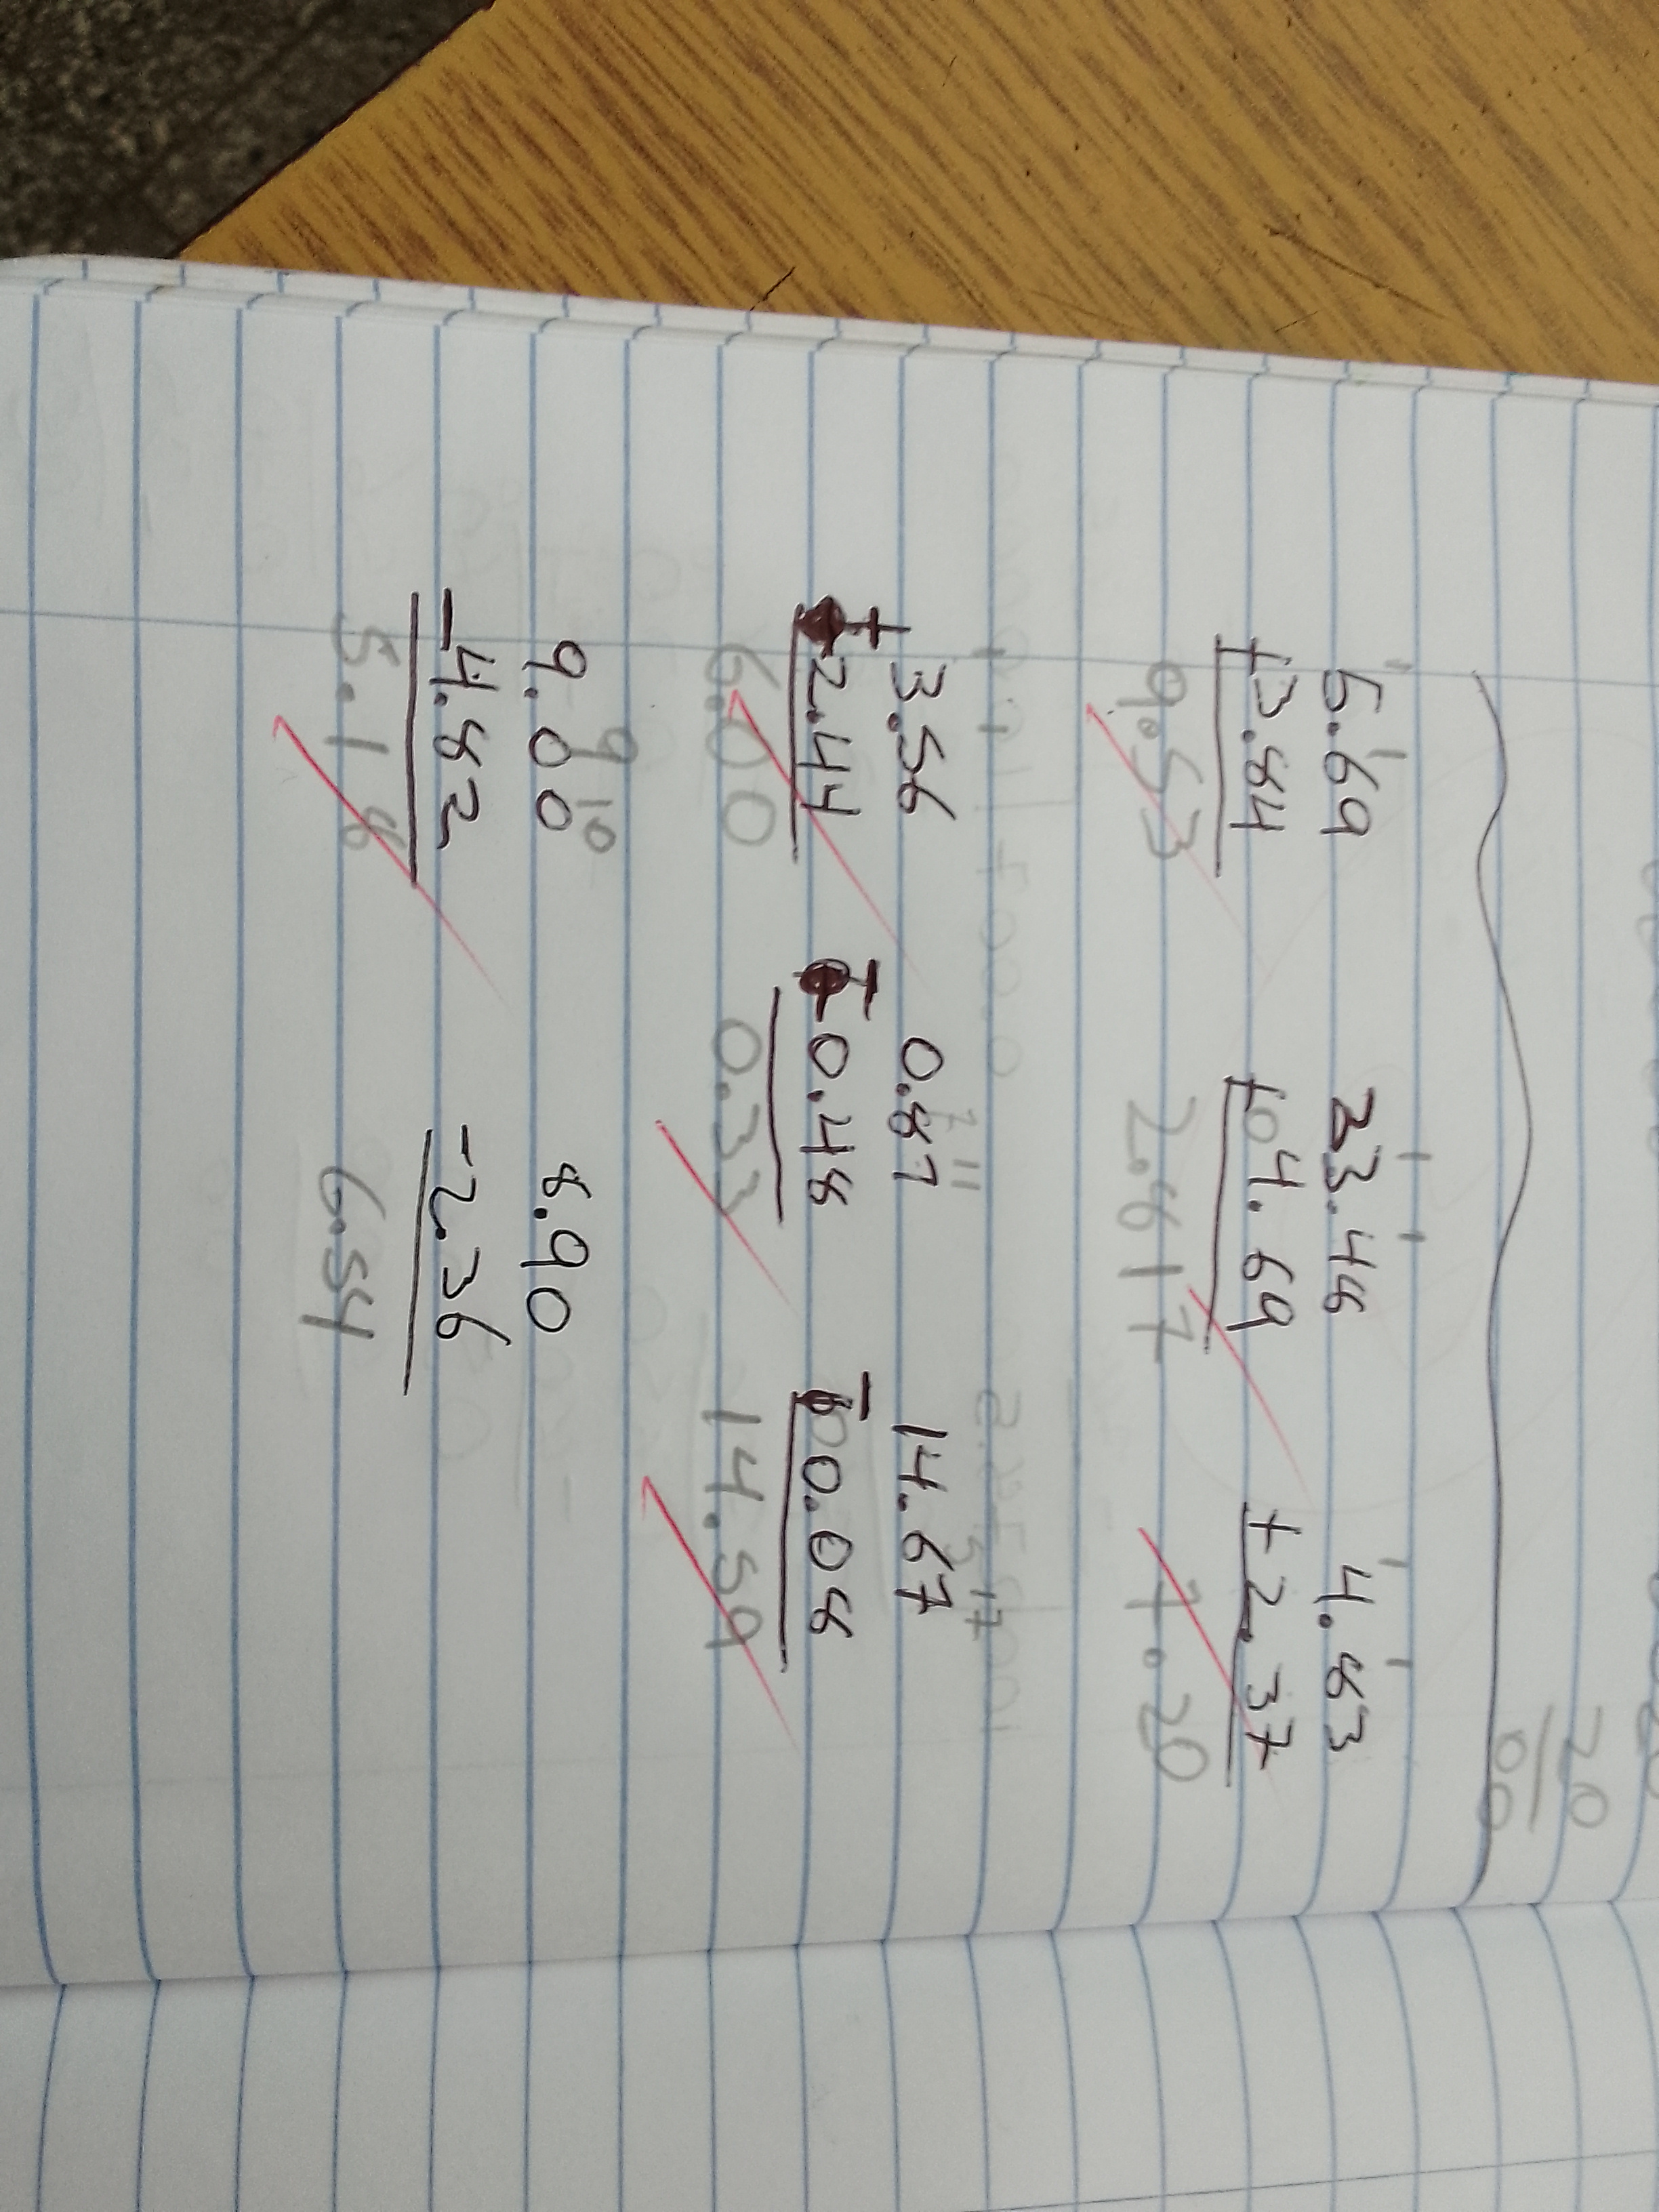 20
00
1 1 1 1 1 1
5.69 23.48 4.83
+3.84 +04.69 +2.37
9.53 2.817 7.20
7 11 5 17
3.56 0.81 14.67
+2.44 -0.48 -00.08
6.00 0.33 14.59
9 10
9.00 8.90
-4.82 -2.36
5.18 6.54